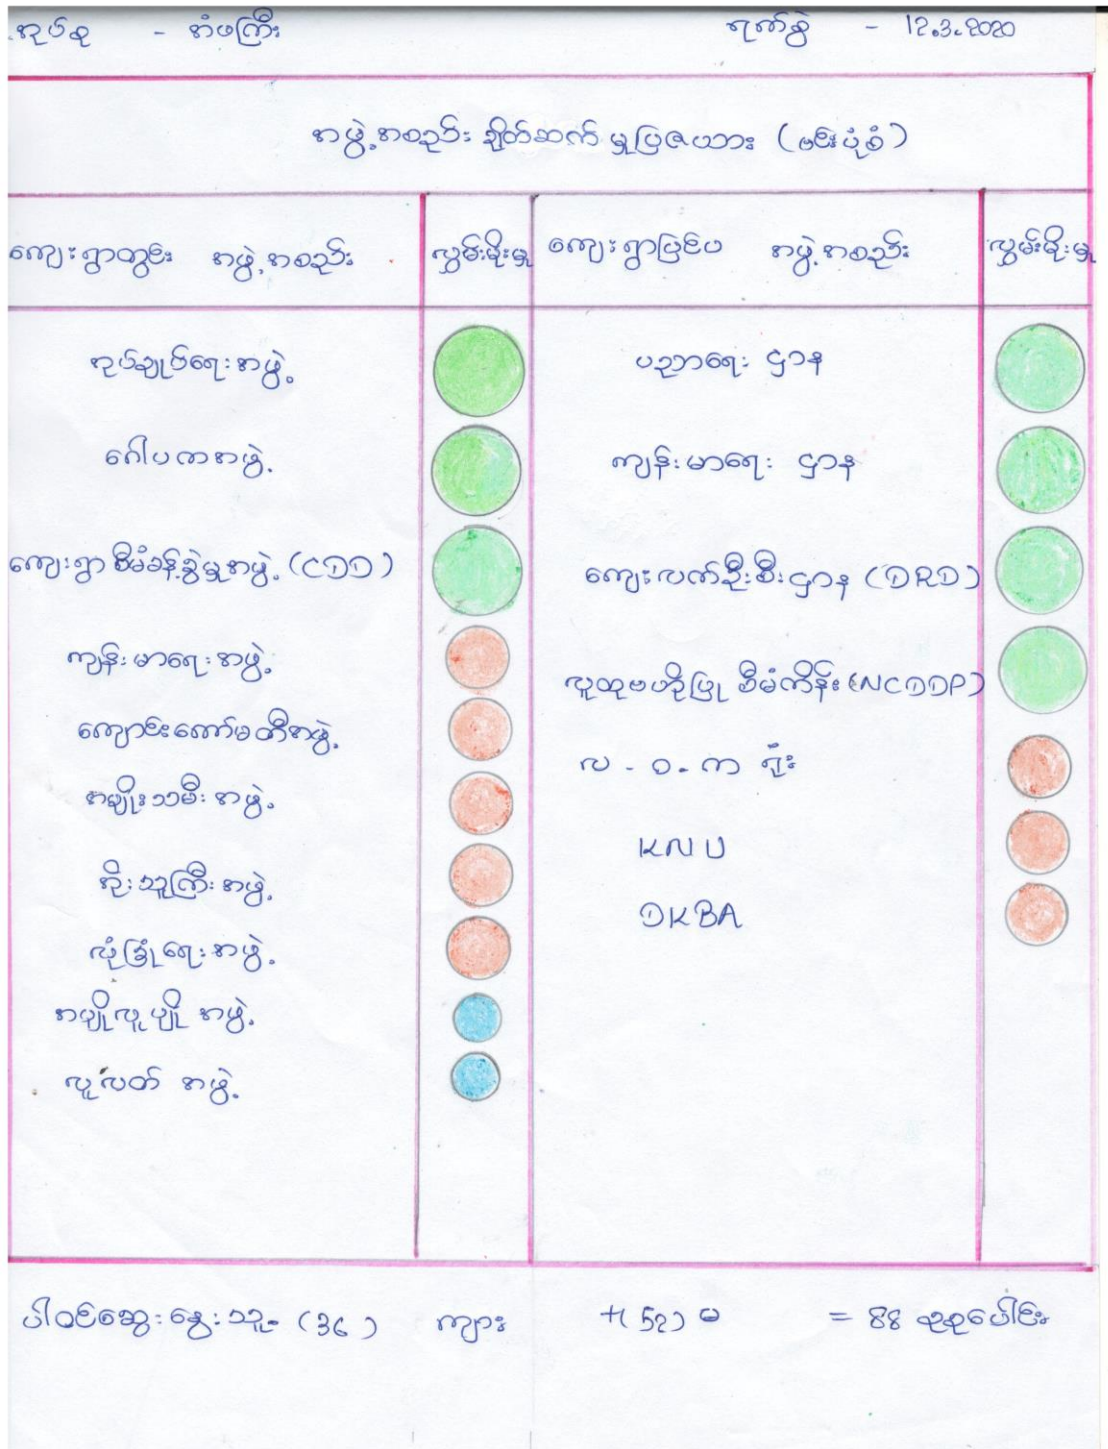 အုပ်စု - အံဖကြီး ရက်စွဲ - 12.3.2020
အဖွဲ့အစည်း ချိတ်ဆက်မှုပြဇယား (ဗင်းပုံစံ)
ကျေးရွာတွင်း အဖွဲ့အစည်း လွှမ်းမိုးမှု ကျေးရွာပြင်ပ အဖွဲ့အစည်း လွှမ်းမိုးမှု
အုပ်ချုပ်ရေးအဖွဲ့ ပညာရေး ဌာန
ဂေါပကအဖွဲ့ ကျန်းမာရေး ဌာန
ကျေးရွာစီမံခန့်ခွဲမှုအဖွဲ့ (CDD) ကျေးလက်ဦးစီးဌာန (DRD)
ကျန်းမာရေးအဖွဲ့ လူထုဗဟိုပြု စီမံကိန်း (NCDDP)
ကျောင်းကော်မတီအဖွဲ့ လ - ဝ - က ရုံး
အမျိုးသမီးအဖွဲ့
အိုးသူကြီးအဖွဲ့ KNU
လုံခြုံရေးအဖွဲ့ DKBA
အပျိုလူပျို အဖွဲ့
လူလတ် အဖွဲ့
ပါဝင်ဆွေးနွေးသူ (36) ကျား +(52) မ = 88 စုစုပေါင်း